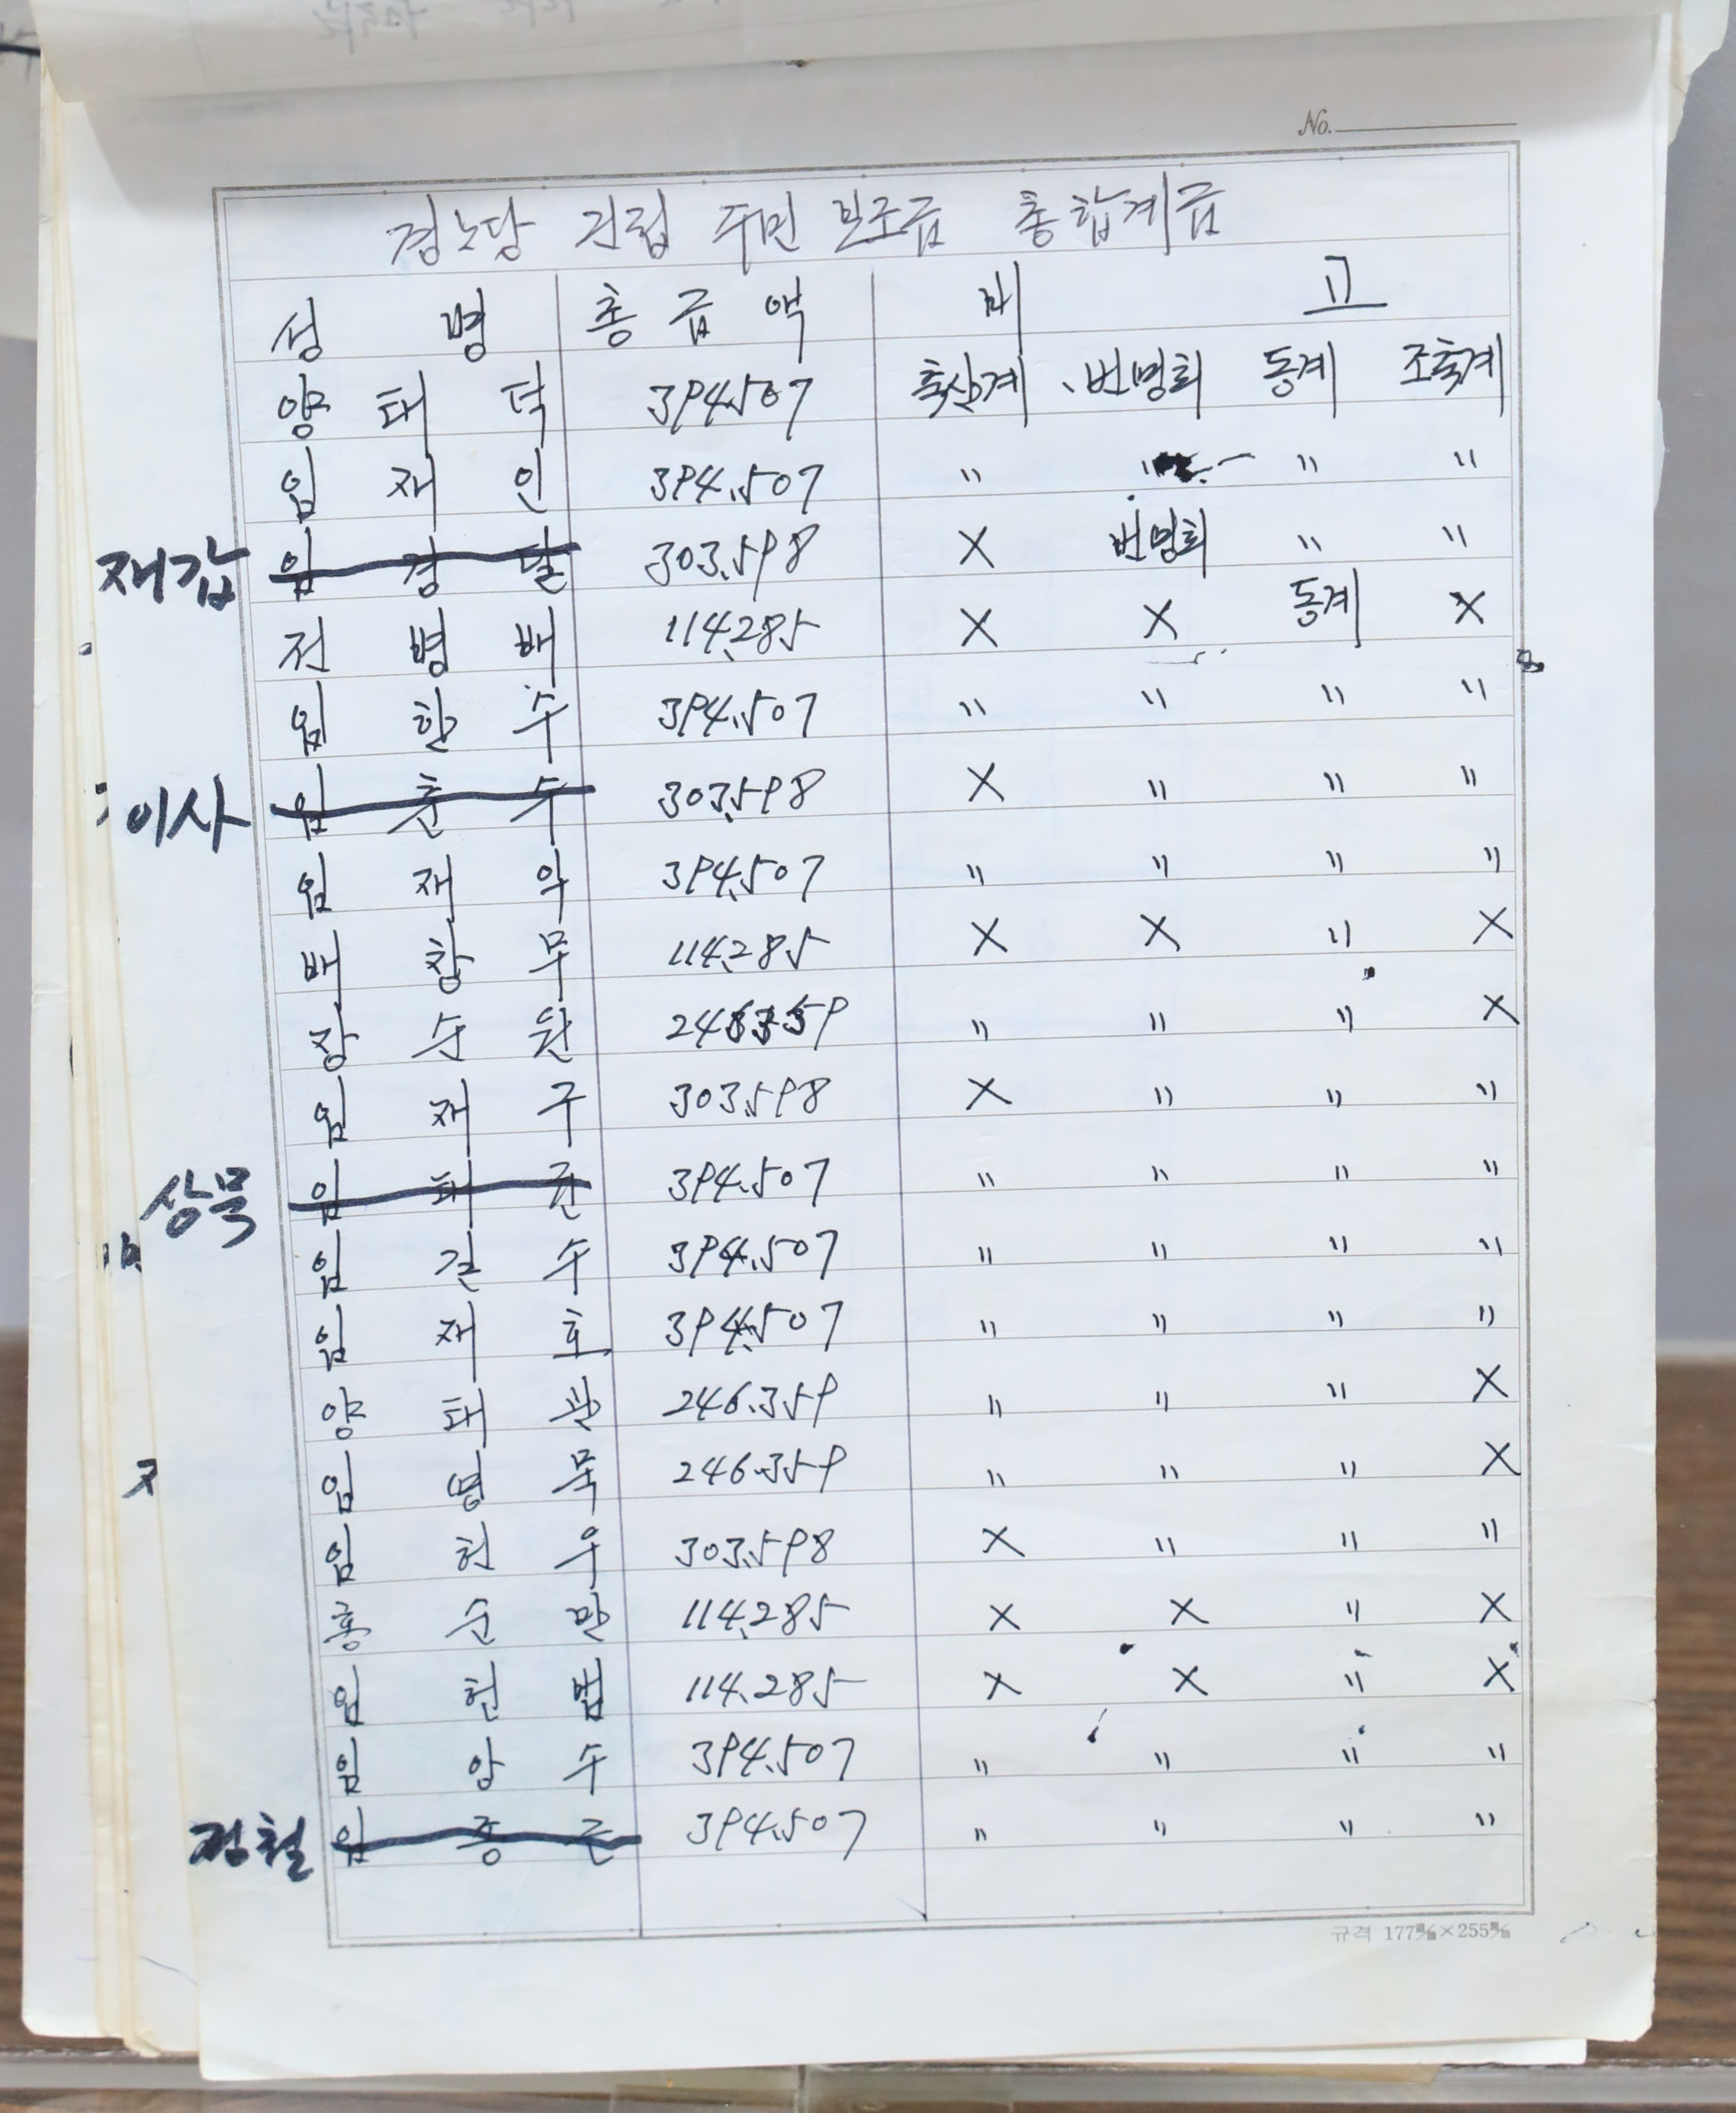 No.
경노당 건립 주민 보조금 총합계금
성 명 총 금 액 비 고
양 태 덕 394.507 축산계 、번영회 동계 조축계
임 재 인 394.507 〃 〃 〃 〃
재갑 임 경 달 303.598 X 번영회 〃 〃
전 병 배 114.285 X X 동계 X
임 한 수 394.507 〃 〃 〃 〃
이사 임 춘 수 303.598 X 〃 〃 〃
임 재 익 394.507 〃 〃 〃 〃
배 창 무 114.285 X X 〃 X
장 수 원 246359 〃 〃 〃 X
임 재 구 303.598 X 〃 〃 〃
상묵 임 태 근 394.507 〃 〃 〃 〃
임 길 수 394.507 〃 〃 〃 〃
임 재 호 394.507 〃 〃 〃 〃
양 태 관 246.359 〃 〃 〃 X
임 명 묵 246.359 〃 〃 〃 X
임 헌 우 303.598 X 〃 〃 〃
홍 순 만 114.285 X X 〃 X
임 헌 범 114.285 X X 〃 X
임 양 수 394.507 〃 〃 〃 〃
정철 임 종 근 394.507 〃 〃 〃 〃
규격 177㎜×255㎜